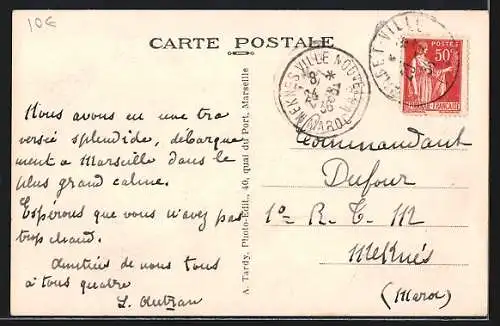 10€
CARTE POSTALE
MEKNES VILLE NOUVELLE
8 *
24
MAROC
SÈTE-VILLE
POSTES
50c
Nous avons eu une tra
versée splendide, débarque
ment à Marseille dans le
plus grand calme.
Espérons que vous n'avez pas
trop chaud.
Amitiés de nous tous
à tous quatre
L. Autran
A. Tardy, Photo-Edit., 40, quai du Port, Marseille
Commandant
Dufour
1er R. T. M
Meknés
(Maroc)